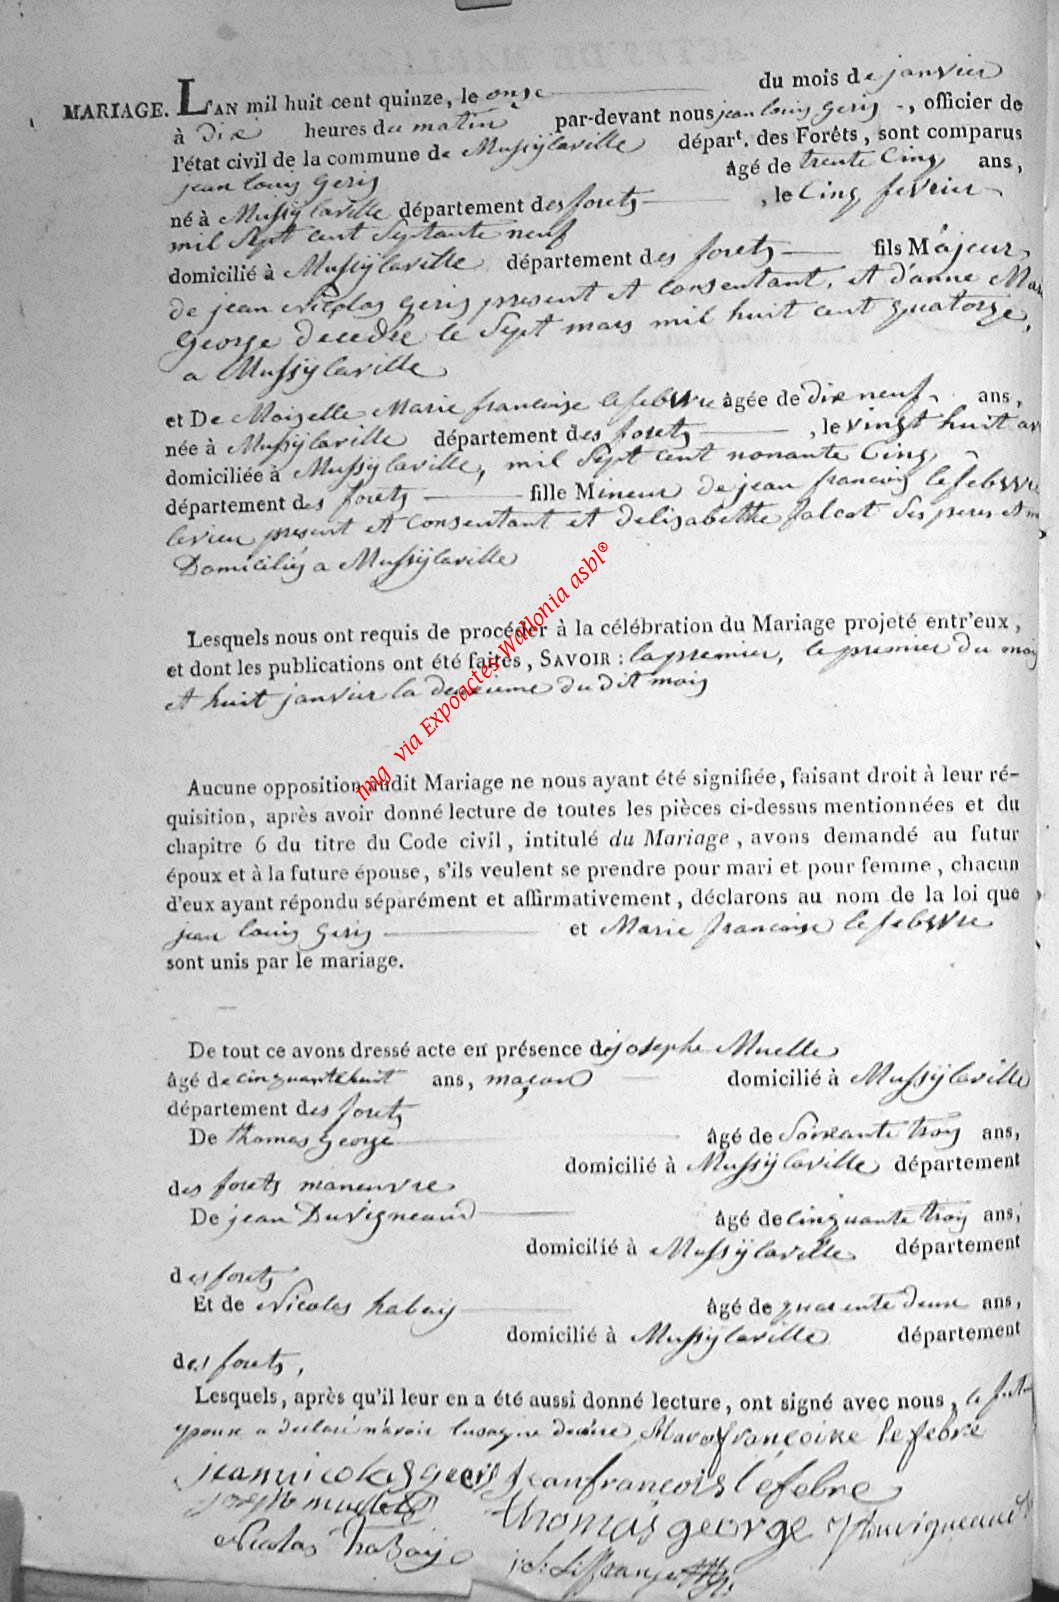 MARIAGE. L'AN mil huit cent quinze, le onze du mois de janvier
à dix heures du matin par-devant nous jean louis geris, officier de
l'état civil de la commune de Mussÿlavilleépar<sup>t</sup>. des Forêts, sont comparus
jean louis geris âgé de trente Cinq ans,
né à Mussÿlaville département des forets, le Cinq fevrier
mil Sept cent Septante neuf
domicilié à Mussÿlaville département des forets fils Májeur
de jean Nicolas geris present et consentant, et d'anne Mari
george decedée le Sept mars mil huit cent quatorze,
a Mussÿlaville
et De Moiselle Marie francoise lefebvre âgée de dix neuf ans,
née à Mussÿlaville département des forets, le vingt huit av
domiciliée à Mussÿlaville, mil Sept cent nonante Cinq
département des forets fille Mineur de jean francois lefebvre
present et consentant et delisabethe Jalcot Ses peres et m
Domiciliés a Mussÿlaville
Lesquels nous ont requis de procéder à la célébration du Mariage projeté entr'eux,
et dont les publications ont été faites, SAVOIR : la premier, le premier du mois
et huit janvier la deuxieme du dit mois
img via Expoactes Wallonia asbl®
Aucune opposition audit Mariage ne nous ayant été signifiée, faisant droit à leur ré-
quisition, après avoir donné lecture de toutes les pièces ci-dessus mentionnées et du
chapitre 6 du titre du Code civil, intitulé du Mariage, avons demandé au futur
époux et à la future épouse, s'ils veulent se prendre pour mari et pour femme, chacun
d'eux ayant répondu séparément et affirmativement, déclarons au nom de la loi que
jean louis geris et Marie francoise lefebvre
sont unis par le mariage.
De tout ce avons dressé acte en présence de josephe Muelle
âgé de cinquante huit ans, maçon domicilié à Mussÿlaville
département des forets
De thomas george âgé de Soixante trois ans,
domicilié à Mussÿlaville département
des forets maneuvre
De jean Duvigneaud âgé de cinquante trois ans,
domicilié à Mussÿlaville département
des forets
Et de Nicolas habaij âgé de quarente deux ans,
domicilié à Mussÿlaville département
des forets,
Lesquels, après qu'il leur en a été aussi donné lecture, ont signé avec nous, le fut
epoux a declaré n'avoir lusage Marie françoise lefebre
jean nicolas geris jean francois lefebre
thomas george J Duvigneaud
Nicolas habaij